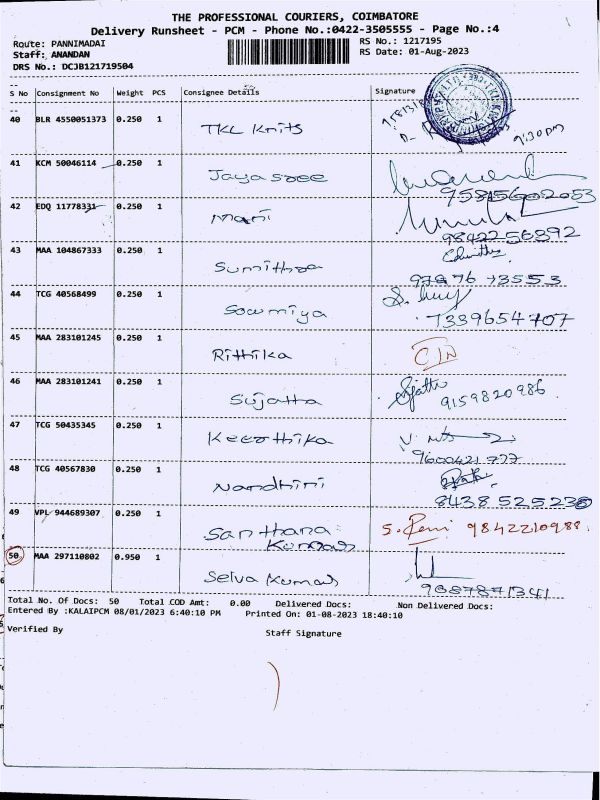 THE PROFESSIONAL COURIERS, COIMBATORE
Delivery Runsheet - PCM - Phone No.:0422-3505555 - Page No.:4
Route: PANNIMADAI RS No.: 1217195
Staff: ANANDAN RS Date: 01-Aug-2023
DRS No.: DCJB121719504
S No Consignment No Weight PCS Consignee Details Signature
40 BLR 4550051373 0.250 1 TKL Knits
9:30 pm
41 KCM 50046114 0.250 1 Jayasree
42 EDQ 11778331 0.250 1 Mani
9842256392
43 MAA 104867333 0.250 1 Sumithra
97876 73553
44 TCG 40568499 0.250 1 Sowmiya
7339654707
45 MAA 283101245 0.250 1 Rithika
46 MAA 283101241 0.250 1 Sujatha
9159820986
47 TCG 50435345 0.250 1 Keerthika
9600421777
48 TCG 40567830 0.250 1 Nandhini
49 VPL 944689307 0.250 1 Santhana Kumar 9842210988
50 MAA 297110802 0.950 1 Selva Kumar
Total No. Of Docs: 50 Total COD Amt: 0.00 Delivered Docs: Non Delivered Docs:
Entered By :KALAIPCM 08/01/2023 6:40:10 PM Printed On: 01-08-2023 18:40:10
Verified By Staff Signature